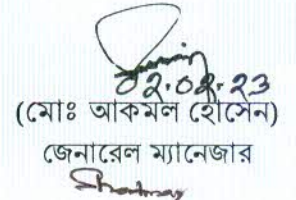 02.02.23
(মোঃ আকমল হোসেন)
জেনারেল ম্যানেজার